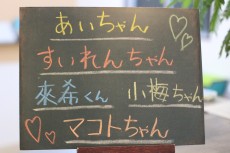 あいちゃん
すいれんちゃん
來希くん 小梅ちゃん
マコトちゃん